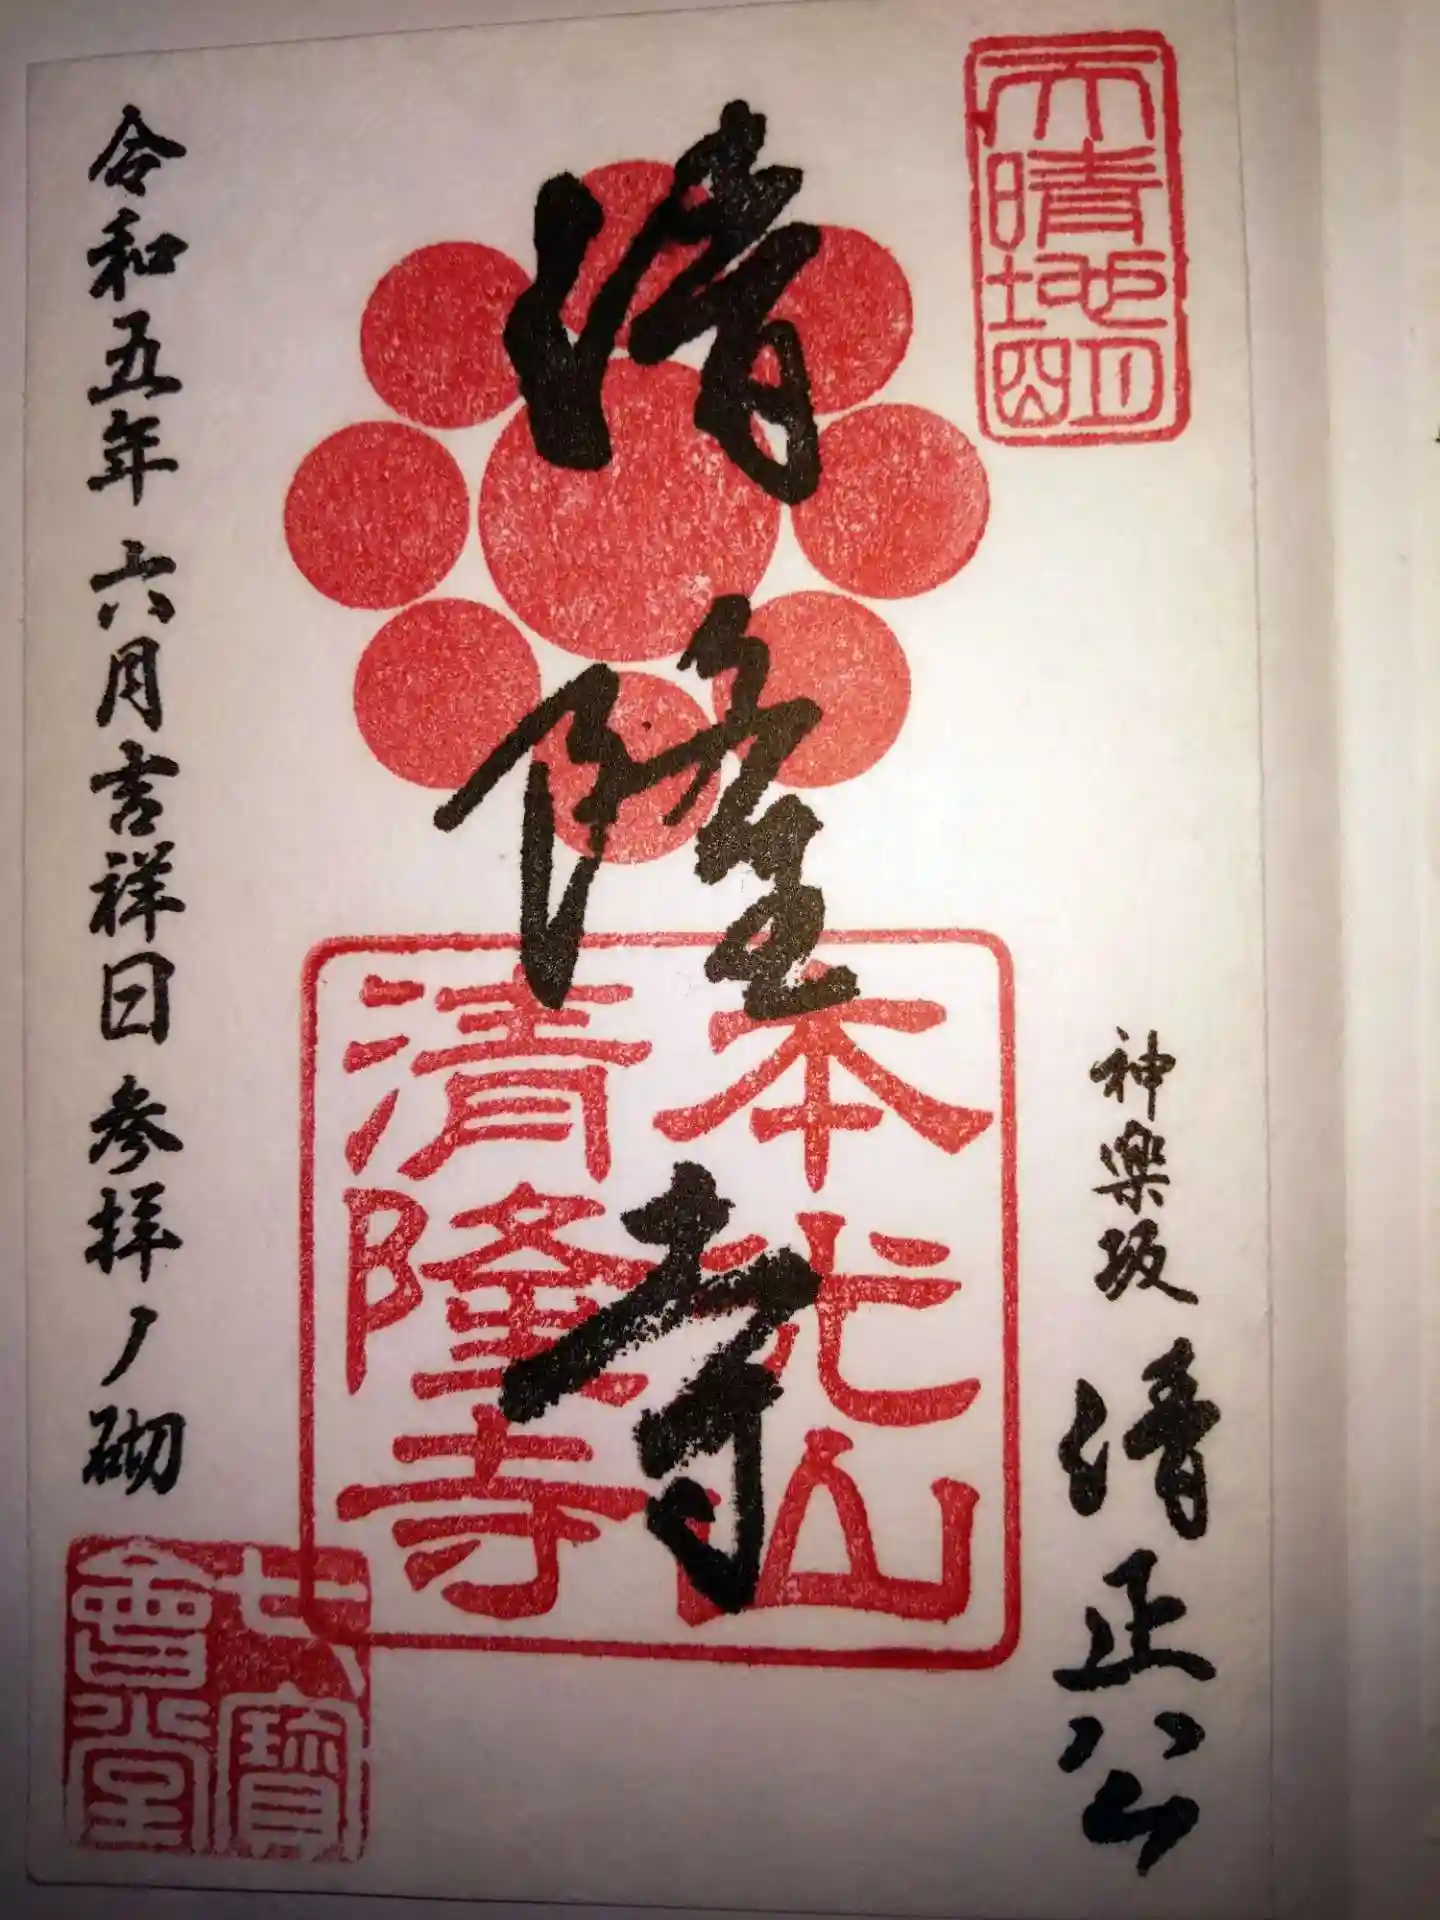 天晴地明
神樂坂 清正公
清隆寺
本光山
清隆寺
令和五年 六月吉祥日 参拝ノ砌
七寶
會堂